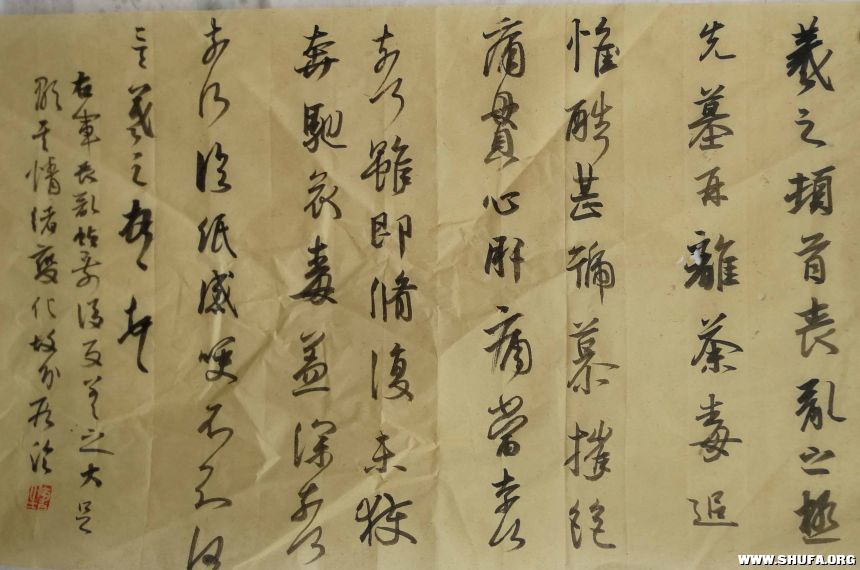 羲之頓首喪亂之極
先墓再離荼毒追
惟酷甚號慕摧絕
痛貫心肝痛當奈何
奈何雖即脩復未獲
奔馳哀毒益深奈何
奈何臨紙感哽不知何
言羲之頓首頓首
右軍喪亂帖前後反差之大足
顯其情緒變化故分臨
WWW.SHUFA.ORG